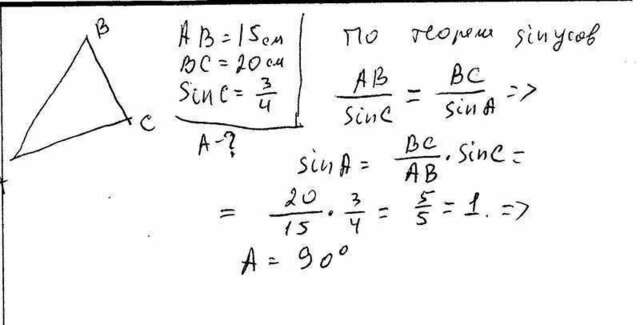 B
C
AB = 15 см
BC = 20 см
Sin C = 3/4
A - ?
По теореме sinусов
AB/sin C = BC/sin A =>
sin A = BC/AB · sin C =
= 20/15 · 3/4 = 5/5 = 1. =>
A = 90°